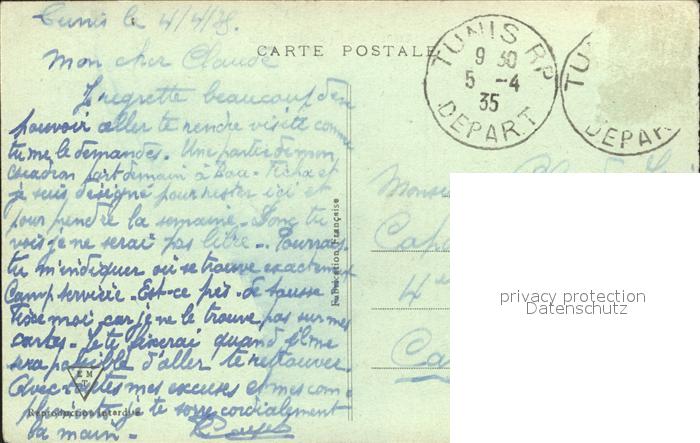 Tunis le 4/4/35.
CARTE POSTALE
Mon cher Claude
Je regrette beaucoup de ne
pouvoir aller te rendre visite comme
tu me le demandes. Une partie de mon
escadron part demain à Bou-Ficha et
je suis désigné pour rester ici et
pour prendre la semaine. Donc tu
vois je ne serai pas libre. Pourrais
tu m'indiquer où se trouve exactement
Camp Servière. Est-ce près de Sousse
Fixe moi car je ne le trouve pas sur mes
cartes. Je te fixerai quand il me
sera possible d'aller te retrouver.
Avec toutes mes excuses et mes com
je te serre cordialement
la main.
EMT
Reproduction Interdite
Fabrication Française
TUNIS RP
9 30
5 -4
35
DEPART
TU
DEPAR
Monsie
4e
Ca
privacy protection
Datenschutz